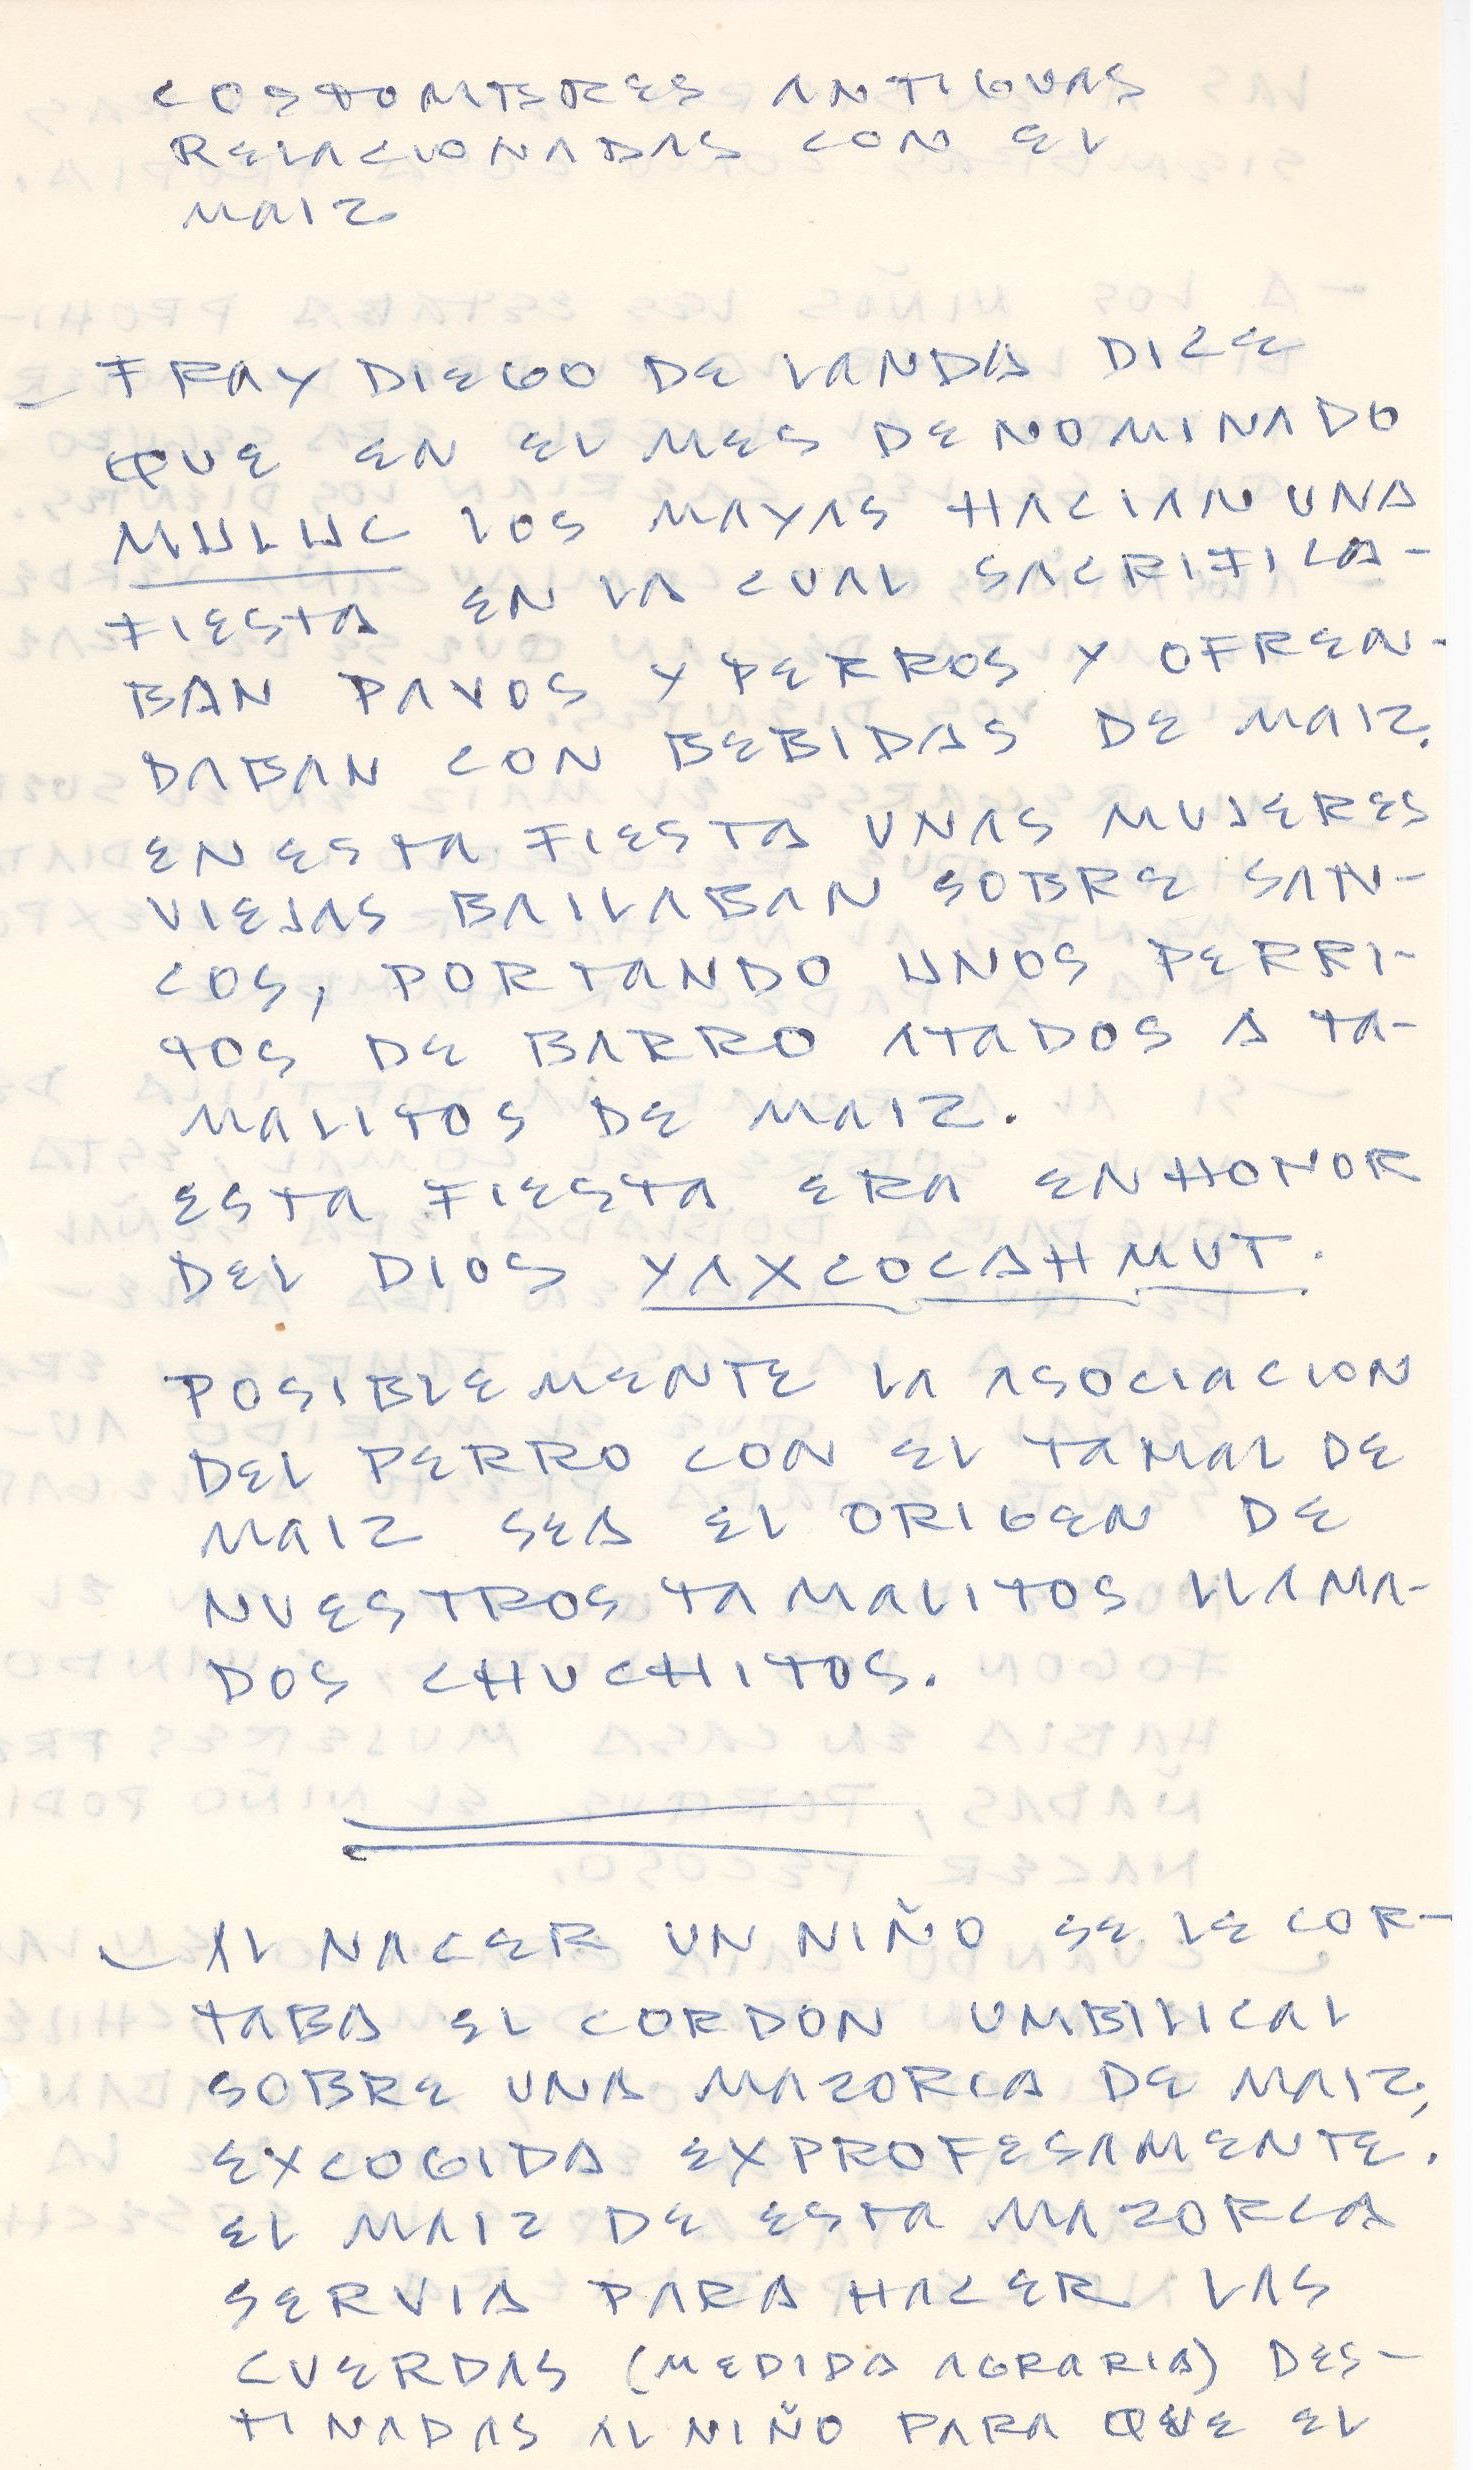 COSTUMBRES ANTIGUAS
RELACIONADAS CON EL
MAIZ
— FRAY DIEGO DE LANDA DICE
QUE EN EL MES DENOMINADO
MULUC LOS MAYAS HACIAN UNA
FIESTA EN LA CUAL SACRIFICA-
BAN PAVOS Y PERROS Y OFREN-
DABAN CON BEBIDAS DE MAIZ.
EN ESTA FIESTA UNAS MUJERES
VIEJAS BAILABAN SOBRE SAN-
COS, PORTANDO UNOS PERRI-
TOS DE BARRO ATADOS A TA-
MALITOS DE MAIZ.
ESTA FIESTA ERA EN HONOR
DEL DIOS YAXCOCAHMUT.
POSIBLEMENTE LA ASOCIACION
DEL PERRO CON EL TAMAL DE
MAIZ SEA EL ORIGEN DE
NUESTROS TAMALITOS LLAMA-
DOS CHUCHITOS.
— AL NACER UN NIÑO SE LE COR-
TABA EL CORDON UMBILICAL
SOBRE UNA MAZORCA DE MAIZ,
EXCOGIDA EXPROFESAMENTE.
EL MAIZ DE ESTA MAZORCA
SERVIA PARA HACER LAS
CUERDAS (MEDIDA AGRARIA) DES-
TINADAS AL NIÑO PARA QUE EL